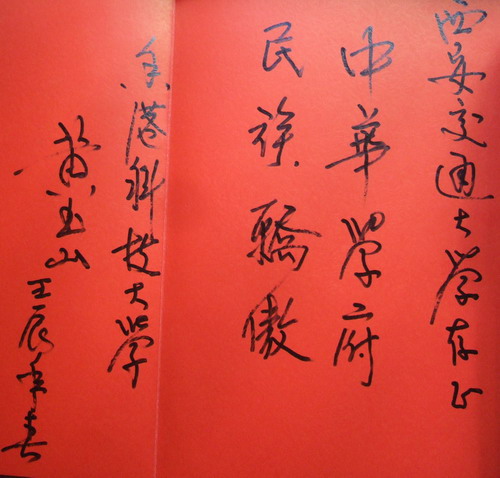 西安交通大学存正
中華學府
民族驕傲
香港科技大學
黄玉山
壬辰年春